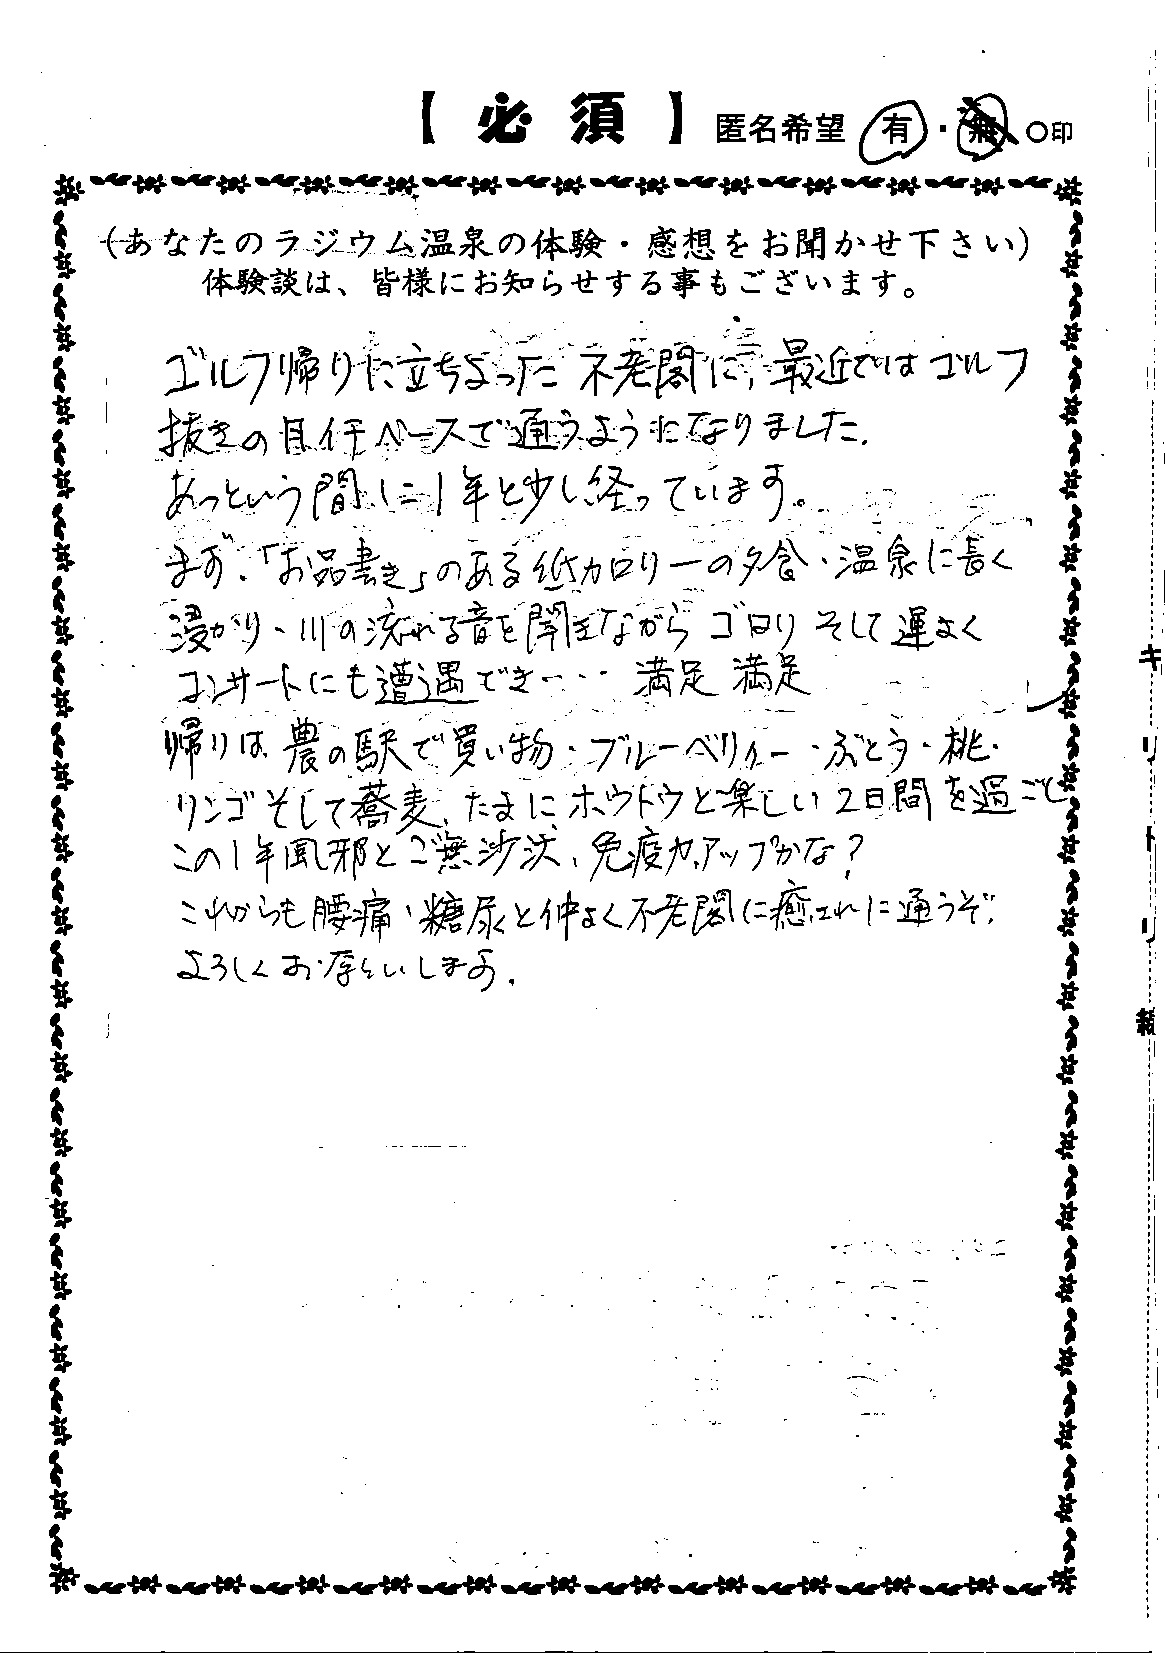 【必須】 匿名希望 有・無 ○印
（あなたのラジウム温泉の体験・感想をお聞かせ下さい）
体験談は、皆様にお知らせする事もございます。
ゴルフ帰りに立ちよった不老閣に、最近ではゴルフ
抜きの月イチペースで通うようになりました。
あっという間に1年と少し経っています。
まず、「お品書き」のある低カロリーの夕食・温泉に長く
浸かり・川の流れる音を聞きながらゴロリ そして運よく
コンサートにも遭遇でき・・・ 満足 満足
帰りは農の駅で買い物・ブルーベリィー・ぶとう・桃・
リンゴそして蕎麦、たまにホウトウと楽しい2日間を過ごし
この1年風邪とご無沙汰、免疫力アップかな？
これからも腰痛・糖尿と仲よく不老閣に癒されに通うぞ。
よろしくお願いします。
キ
リ
ト
リ
線